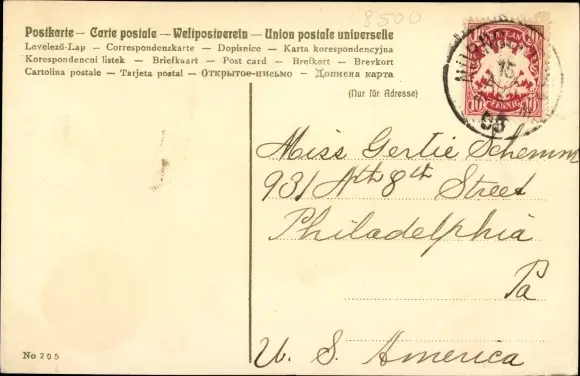 8500
Postkarte — Carte postale — Weltpostverein — Union postale universelle
Levelező-Lap — Correspondenzkarte — Dopisnice — Karta korespondencyjna
Korespondencni listek — Briefkaart — Post card — Brefkort — Brevkort
Cartolina postale — Tarjeta postal — Открытое-письмо — Дописна карта
(Nur für Adresse)
10 PFENNIG 10
15
Miss Gertie Schemm
931 Nth 8th Street
Philadelphia
Pa
U. S. America
No 205